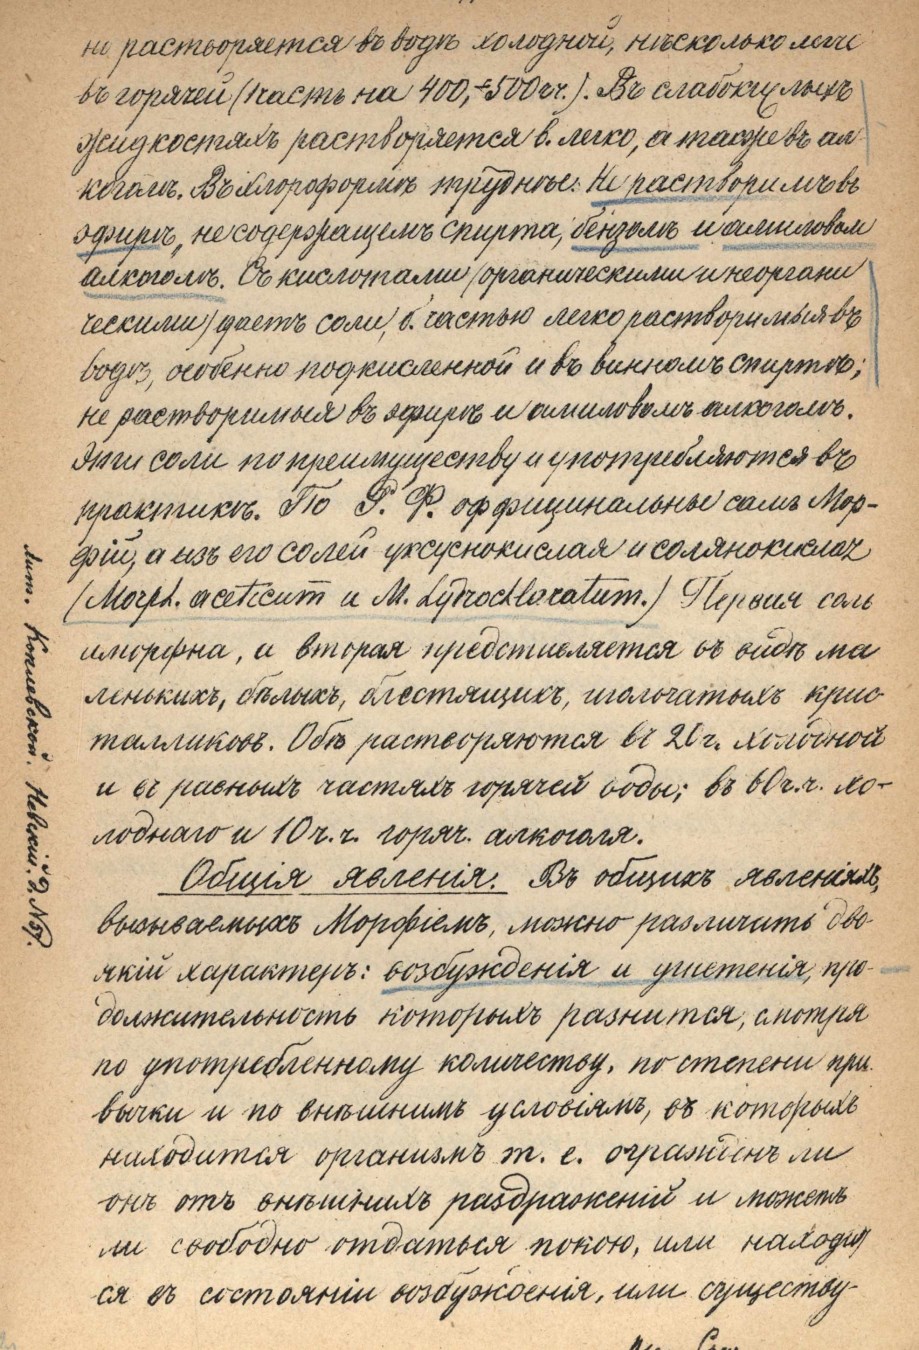 не растворяется въ водѣ холодной, нѣсколько легче
въ горячей (1 часть на 400,-500 ч.ч.). Въ слабокислыхъ
жидкостяхъ растворяется в. легко, а также въ ал-
коголѣ. Въ хлороформѣ труднѣе. Не растворимъ въ
эфирѣ, не содержащемъ спирта, бензолѣ и амиловом
алкоголѣ. Съ кислотами (органическими и неоргани
ческими) даетъ соли, б. частью легко растворимыя въ
водѣ, особенно подкисленной и въ винномъ спиртѣ;
не растворимыя въ эфирѣ и амиловомъ алкоголѣ.
Эти соли по преимуществу и употребляются въ
практикѣ. По Р. Ф. оффицинальны самъ Мор-
фій, а изъ его солей уксуснокислая и солянокислая
(Morph. aceticum и M. hydrochloratum.) Первая соль
аморфна, а вторая представляется въ видѣ ма
ленькихъ, бѣлыхъ, блестящихъ, игольчатыхъ крис-
талликовъ. Обѣ растворяются въ 20 ч. холодной
и въ равныхъ частяхъ горячей воды; въ 60 ч.ч. хо-
лоднаго и 10 ч.ч. горяч. алкоголя.
Общія явленія. Въ общихъ явленіяхъ,
вызываемыхъ Морфіемъ, можно различить дво-
якій характеръ: возбужденія и угнетенія, про-
должительность которыхъ разнится, смотря
по употребленному количеству, по степени при
вычки и по внѣшнимъ условіямъ, въ которыхъ
находится организмъ т. е. огражденъ ли
онъ отъ внѣшнихъ раздраженій и можетъ
ли свободно отдаться покою, или находит
ся въ состояніи возбужденія, или существу-
Лит. Невскій. Д. №